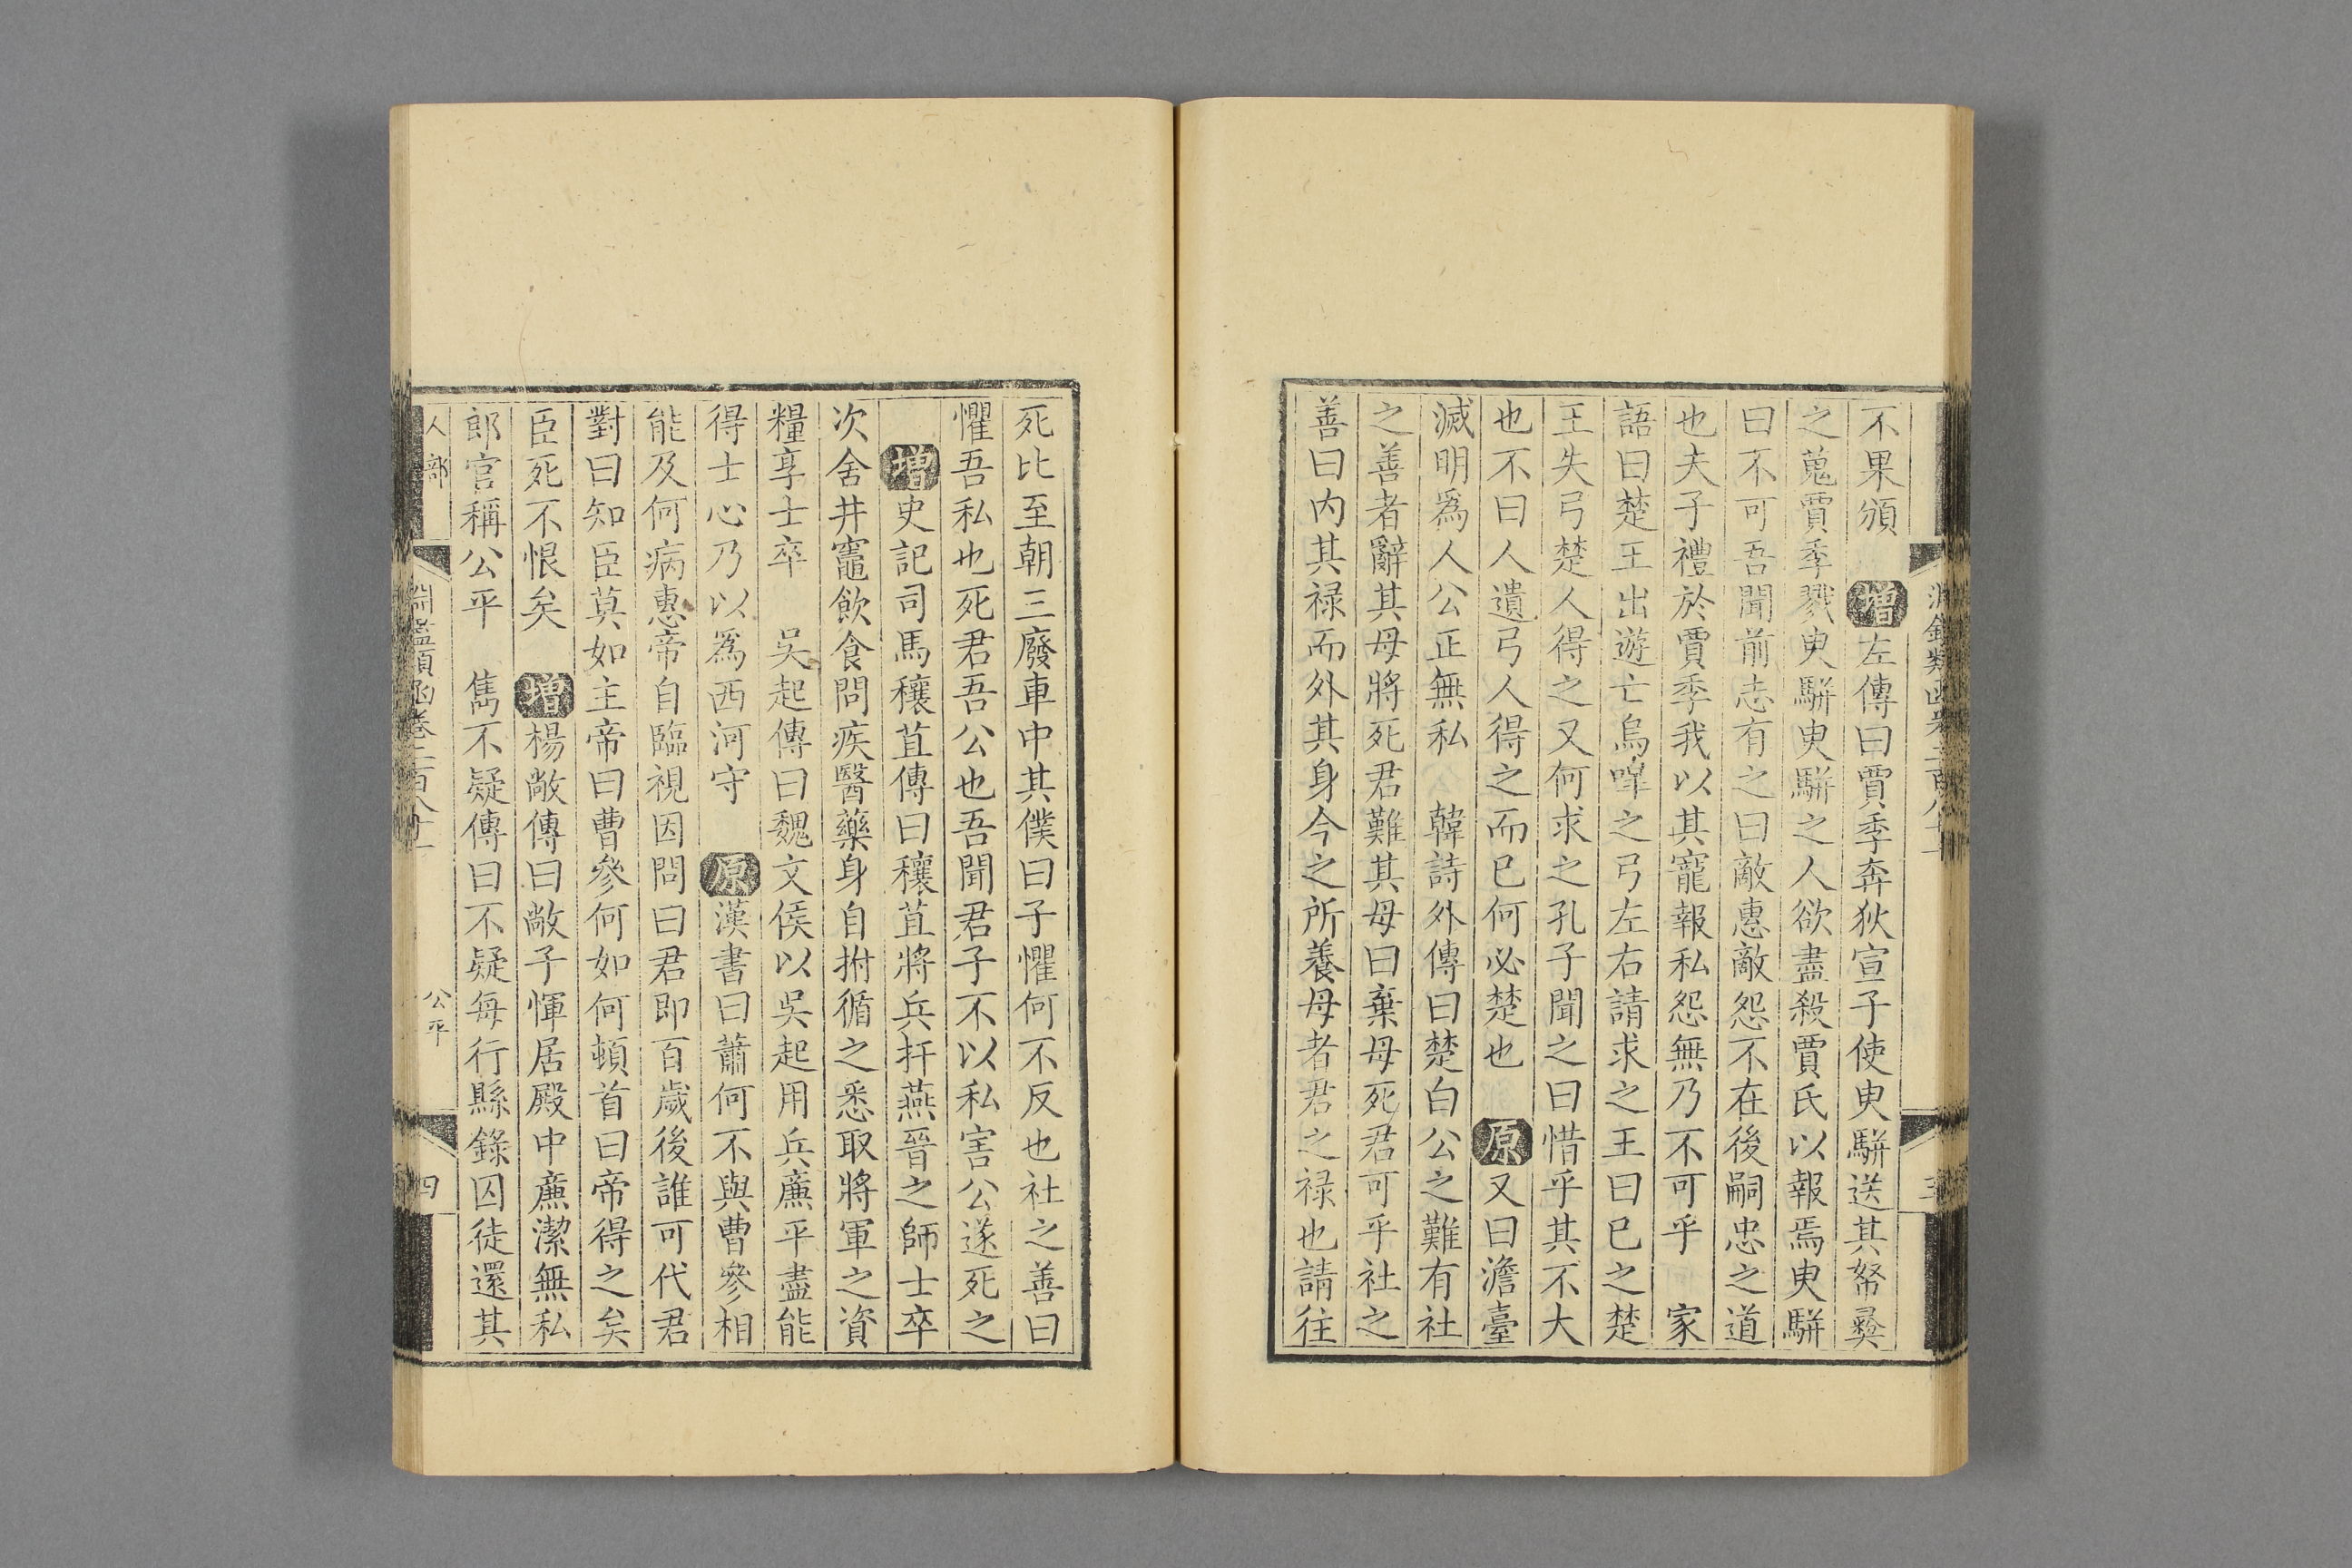 不果頒　增左傳曰賈季奔狄宣子使臾駢送其帑彛
之蒐賈季戮臾駢臾駢之人欲盡殺賈氏以報焉臾駢
曰不可吾聞前志有之曰敵惠敵怨不在後嗣忠之道
也夫子禮於賈季我以其寵報私怨無乃不可乎　家
語曰楚王出遊亡烏嘷之弓左右請求之王曰已之楚
王失弓楚人得之又何求之孔子聞之曰惜乎其不大
也不曰人遺弓人得之而已何必楚也　原又曰澹臺
滅明爲人公正無私　韓詩外傳曰楚白公之難有社
之善者辭其母將死君難其母曰棄母死君可乎社之
善曰内其禄而外其身今之所養母者君之禄也請往
死比至朝三廢車中其僕曰子懼何不反也社之善曰
懼吾私也死君吾公也吾聞君子不以私害公遂死之
增史記司馬穰苴傳曰穰苴將兵扞燕晉之師士卒
次舍井竈飲食問疾醫藥身自拊循之悉取將軍之資
糧享士卒　吳起傳曰魏文侯以吳起用兵廉平盡能
得士心乃以爲西河守　原漢書曰蕭何不與曹參相
能及何病惠帝自臨視因問曰君即百歲後誰可代君
對曰知臣莫如主帝曰曹參何如何頓首曰帝得之矣
臣死不恨矣　增楊敞傳曰敞子惲居殿中廉潔無私
郎官稱公平　雋不疑傳曰不疑每行縣錄囚徒還其
人部
淵鑑類函卷二百八十一
公平
四